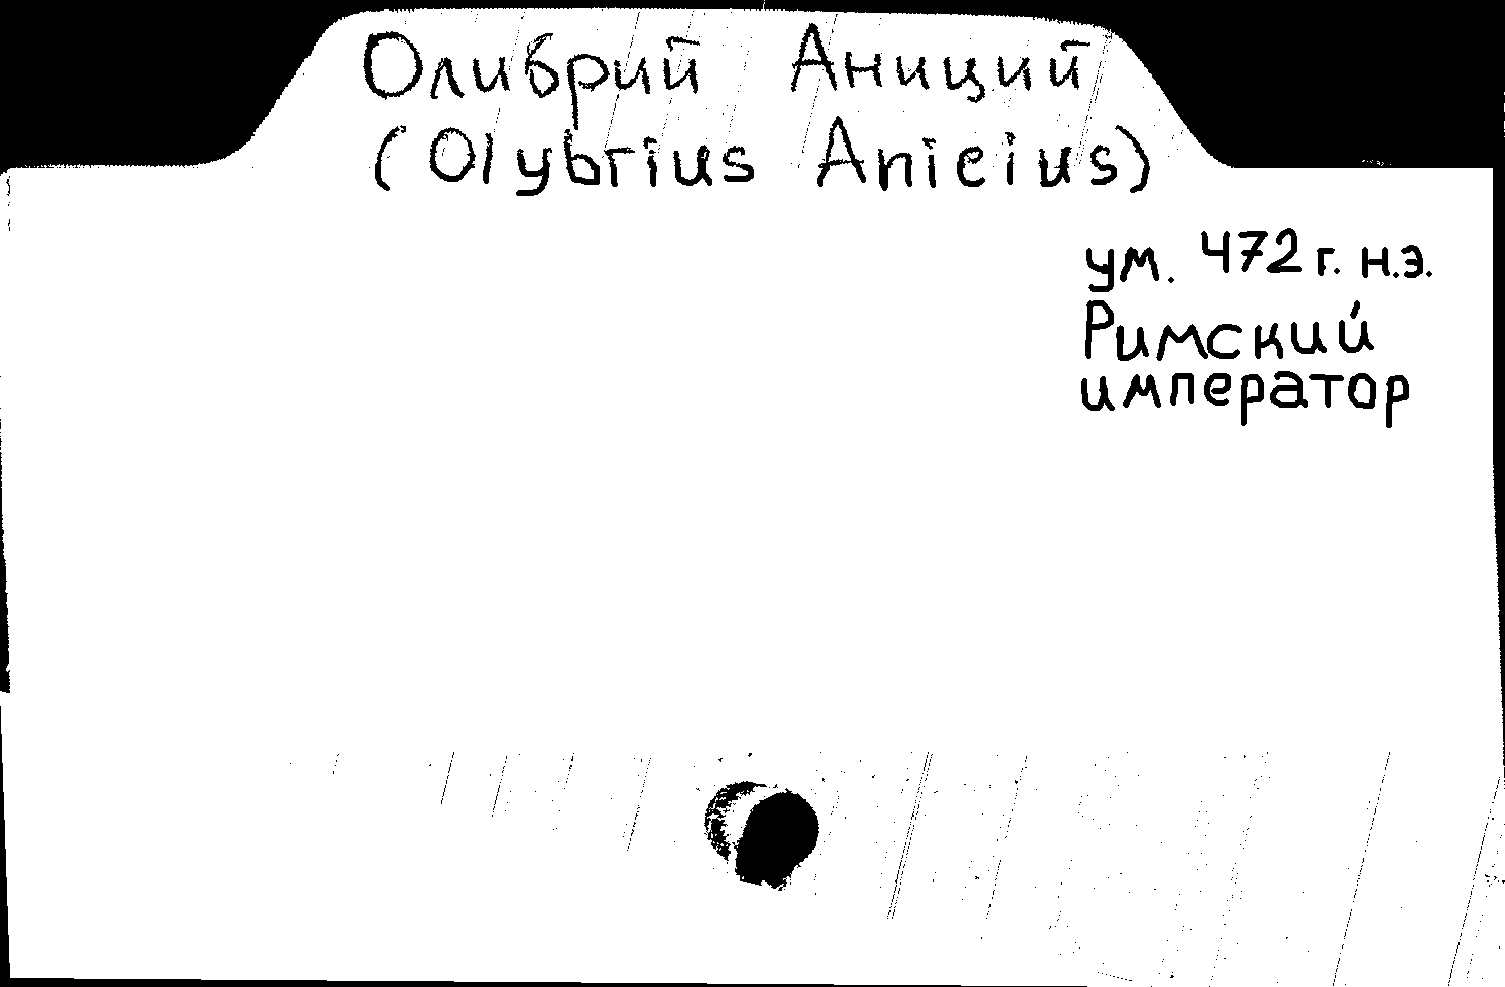 Оливрий Аниций
(Olybrius Anicius)
ум. 472 г. н.э.
Римский
император